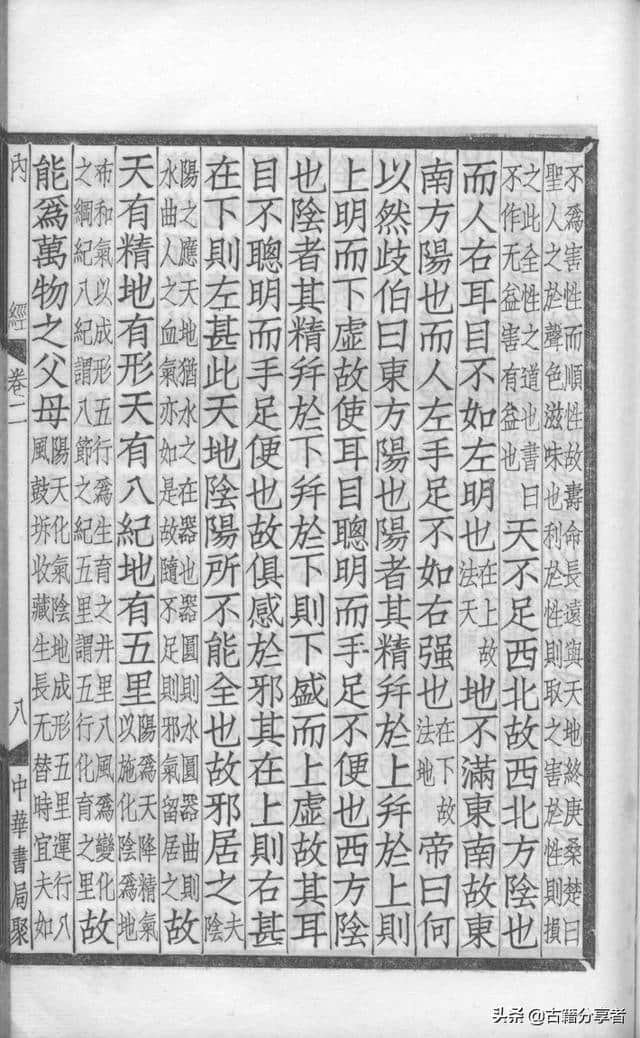 不爲害性而順性故壽命長遠與天地終庚桑楚曰
聖人之於聲色滋味也利於性則取之害於性則損
之此全性之道也書曰不作无益害有益也天不足西北故西北方陰也
而人右耳目不如左明也在上故法天地不滿東南故東
南方陽也而人左手足不如右强也在下故法地帝曰何
以然歧伯曰東方陽也陽者其精幷於上幷於上則
上明而下虛故使耳目聰明而手足不便也西方陰
也陰者其精幷於下幷於下則下盛而上虛故其耳
目不聰明而手足便也故俱感於邪其在上則右甚
在下則左甚此天地陰陽所不能全也故邪居之夫陰
陽之應天地猶水之在器也器圓則水圓器曲則
水曲人之血氣亦如是故隨不足則邪氣留居之故
天有精地有形天有八紀地有五里陽爲天降精氣以施化陰爲地
布和氣以成形五行爲生育之井里八風爲變化
之綱紀八紀謂八節之紀五里謂五行化育之里故
能爲萬物之父母陽天化氣陰地成形五里運行八風鼓拆收藏生長无替時宜夫如
內經 卷二 八 中華書局聚
头条 @古籍分享者